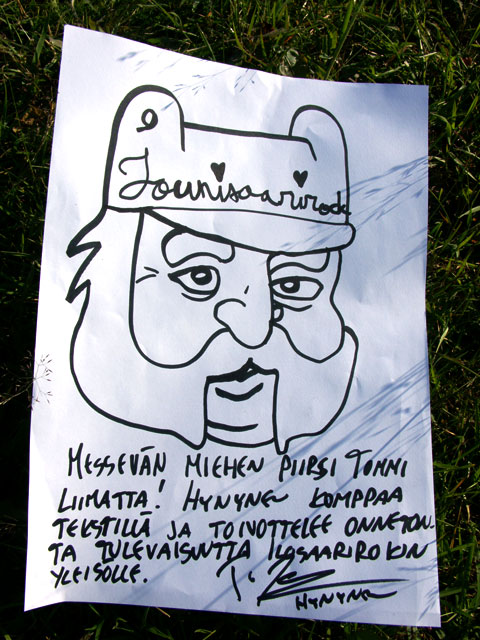 Jounisaarirock
MESSEVÄN MIEHEN PIIRSI TOMMI
LIIMATTA! HYNYNEN KOMPPAA
TEKSTILLÄ JA TOIVOTTELEE ONNETON
TA TULEVAISUUTTA ILOSAARIROKIN
YLEISÖLLE.
HYNYNEN